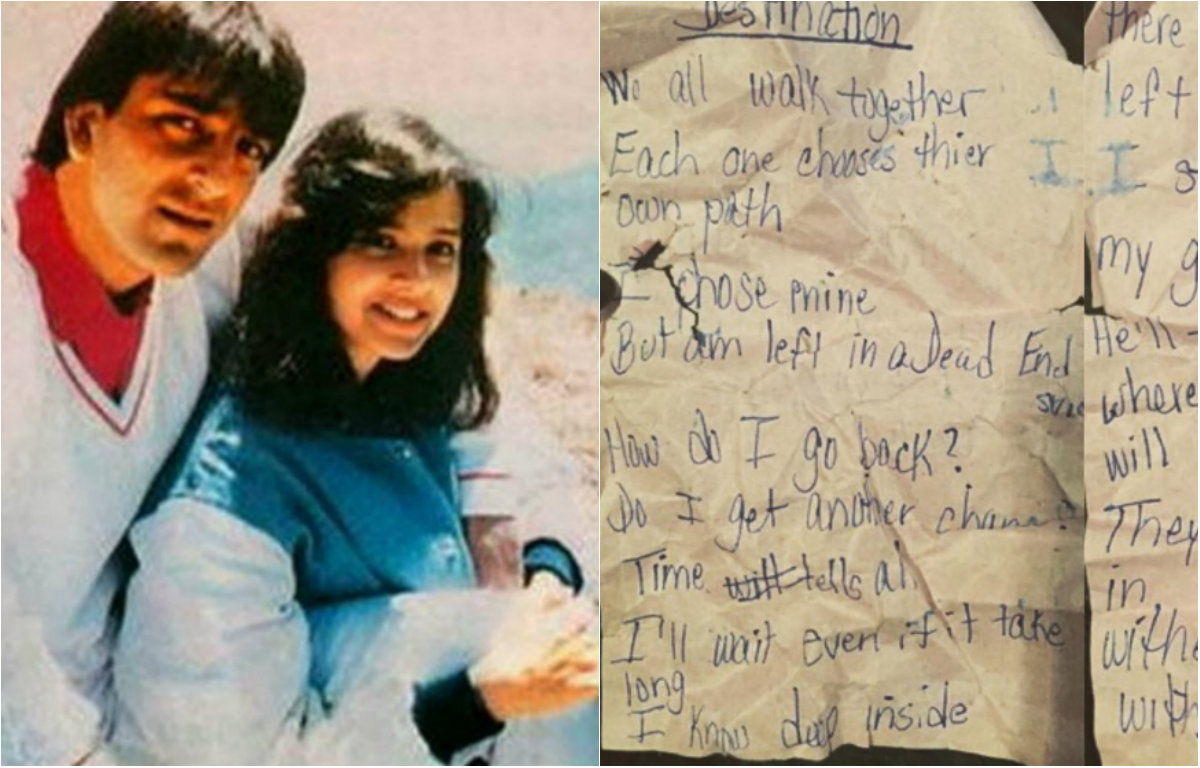 Destination
We all walk together
Each one chooses thier
own path
I chose mine
But am left in a Dead End
How do I go back?
Do I get another
Time will tells all
I'll wait even if it take
long
I know deep inside
there
left
I
my
He'll
where
will
They
in